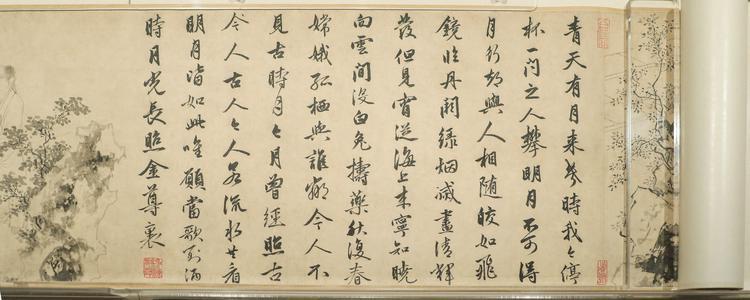 青天有月來幾時我今停
杯一问之人攀明月不可得
月行却與人相隨皎如飛
鏡臨丹闕綠烟滅盡清輝
發但見宵從海上來寧知曉
向雲間没白兔擣藥秋復春
嫦娥孤栖與誰鄰今人不
見古時月今月曾經照古
今人古人〻若流水共看
明月皆如此唯願當歌對酒
時月光長照金尊裏